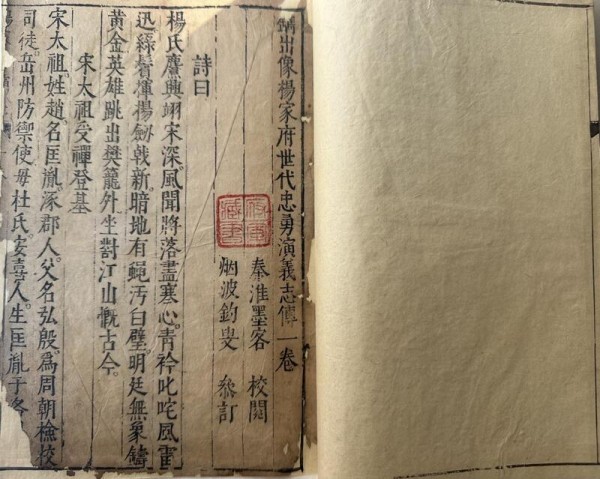 鐫出像楊家府世代忠勇演義志傳一卷
秦淮墨客 校閱
烟波釣叟 參訂
詩曰
楊氏鷹興翊宋深。風聞將落盡塞心。青衿叱咤風雷
迅。綠鬢揮揚劍戟新。暗地有蠅汚白璧。明廷無象鑄
黃金。英雄跳出樊籠外。坐對江山慨古今。
宋太祖受禪登基
宋太祖姓趙。名匡胤。涿郡人。父名弘殷。爲周朝檢校
司徒。岳州防禦使。母杜氏。安喜人。生匡胤于